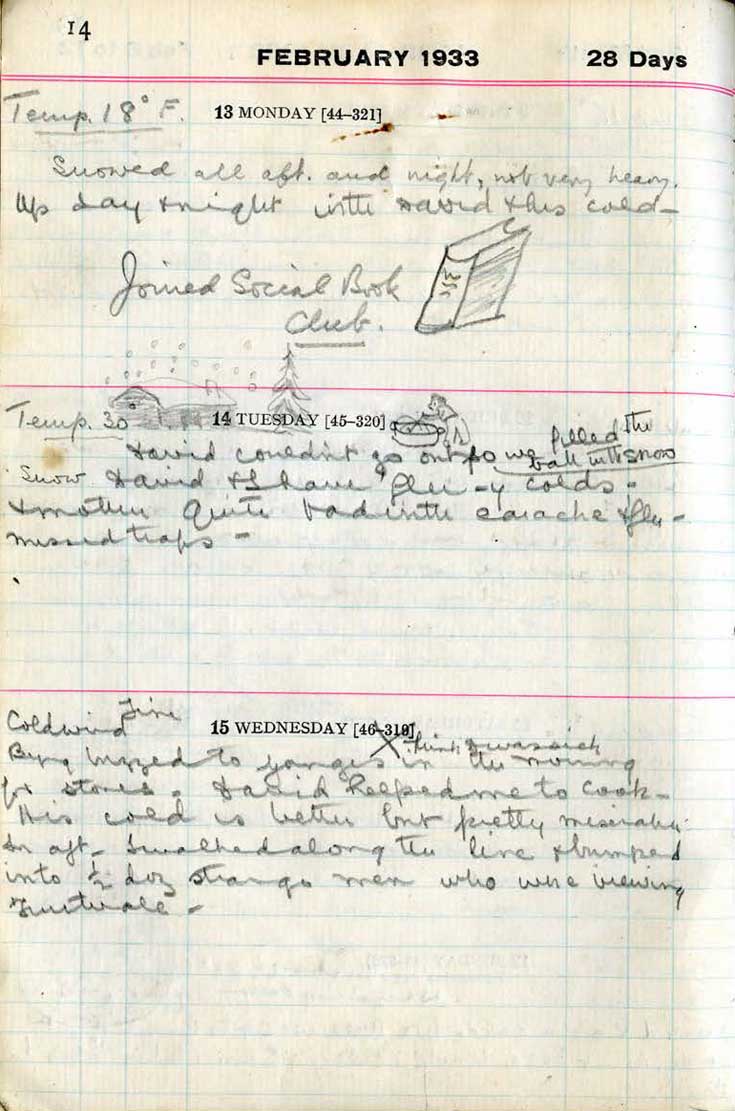 14
FEBRUARY 1933 28 Days
Temp. 18° F. 13 MONDAY [44–321]
Snowed all aft. and night, not very heavy.
Up day & night with David & his cold –
Joined Social Book
Club.
Temp. 30° 14 TUESDAY [45–320]
David couldn't go out so we filled the
bath with snow
Snow David & I have "flu"-y colds –
& mother quite bad with earache & flu –
missed traps –
Cold wind Fine 15 WEDNESDAY [46–319]
X think I was sick
buzzed to in the morning
for stores. David helped me to cook –
His cold is better but pretty miserable
In aft. I walked along the line & bumped
into ½ doz strange men who were viewing